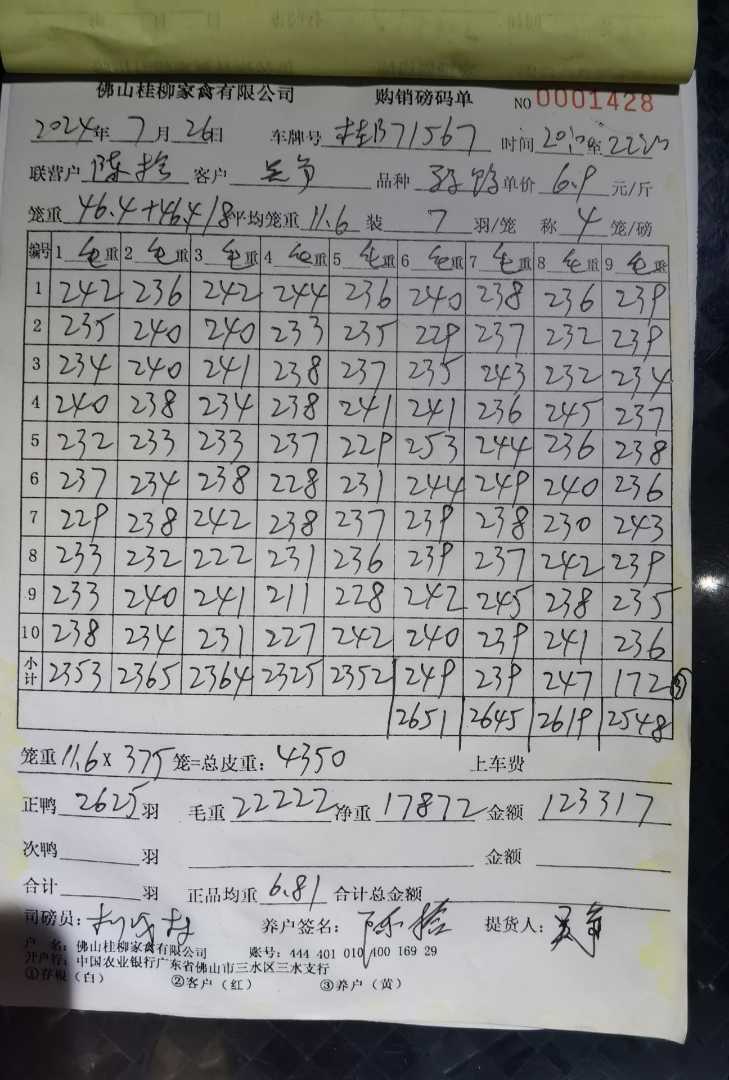 佛山桂柳家禽有限公司 购销磅码单 NO 0001428
2024年 7月 26日 车牌号 桂B71567 时间 至
联营户 陈 客户 品种 单价 6.9 元/斤
笼重 46.4+46.4/8 平均笼重 11.6 装 7 羽/笼 称 4 笼/磅
编号 1 毛重 2 毛重 3 毛重 4 毛重 5 毛重 6 毛重 7 毛重 8 毛重 9 毛重
1 242 236 242 244 236 240 238 236 239
2 235 240 240 233 235 229 237 232 239
3 234 240 241 238 237 235 243 232 234
4 240 238 234 238 241 241 236 245 237
5 232 233 233 237 229 253 244 236 238
6 237 234 238 228 231 244 249 240 236
7 229 238 242 238 237 239 238 230 243
8 233 232 222 231 236 239 237 242 239
9 233 240 241 211 228 242 245 238 235
10 238 234 231 227 242 240 239 241 236
小计 2353 2365 2364 2325 2352 249 239 247 172 ③
2651 2645 2619 2548
笼重 11.6 x 375 笼=总皮重: 4350 上车费
正鸭 2625 羽 毛重 22222 净重 17872 金额 123317
次鸭 羽 金额
合计 羽 正品均重 6.81 合计总金额
司磅员: 养户签名: 陈 提货人:
户 名: 佛山桂柳家禽有限公司 账号: 444 401 010 400 169 29
开户行: 中国农业银行广东省佛山市三水区三水支行
①存根(白) ②客户(红) ③养户(黄)